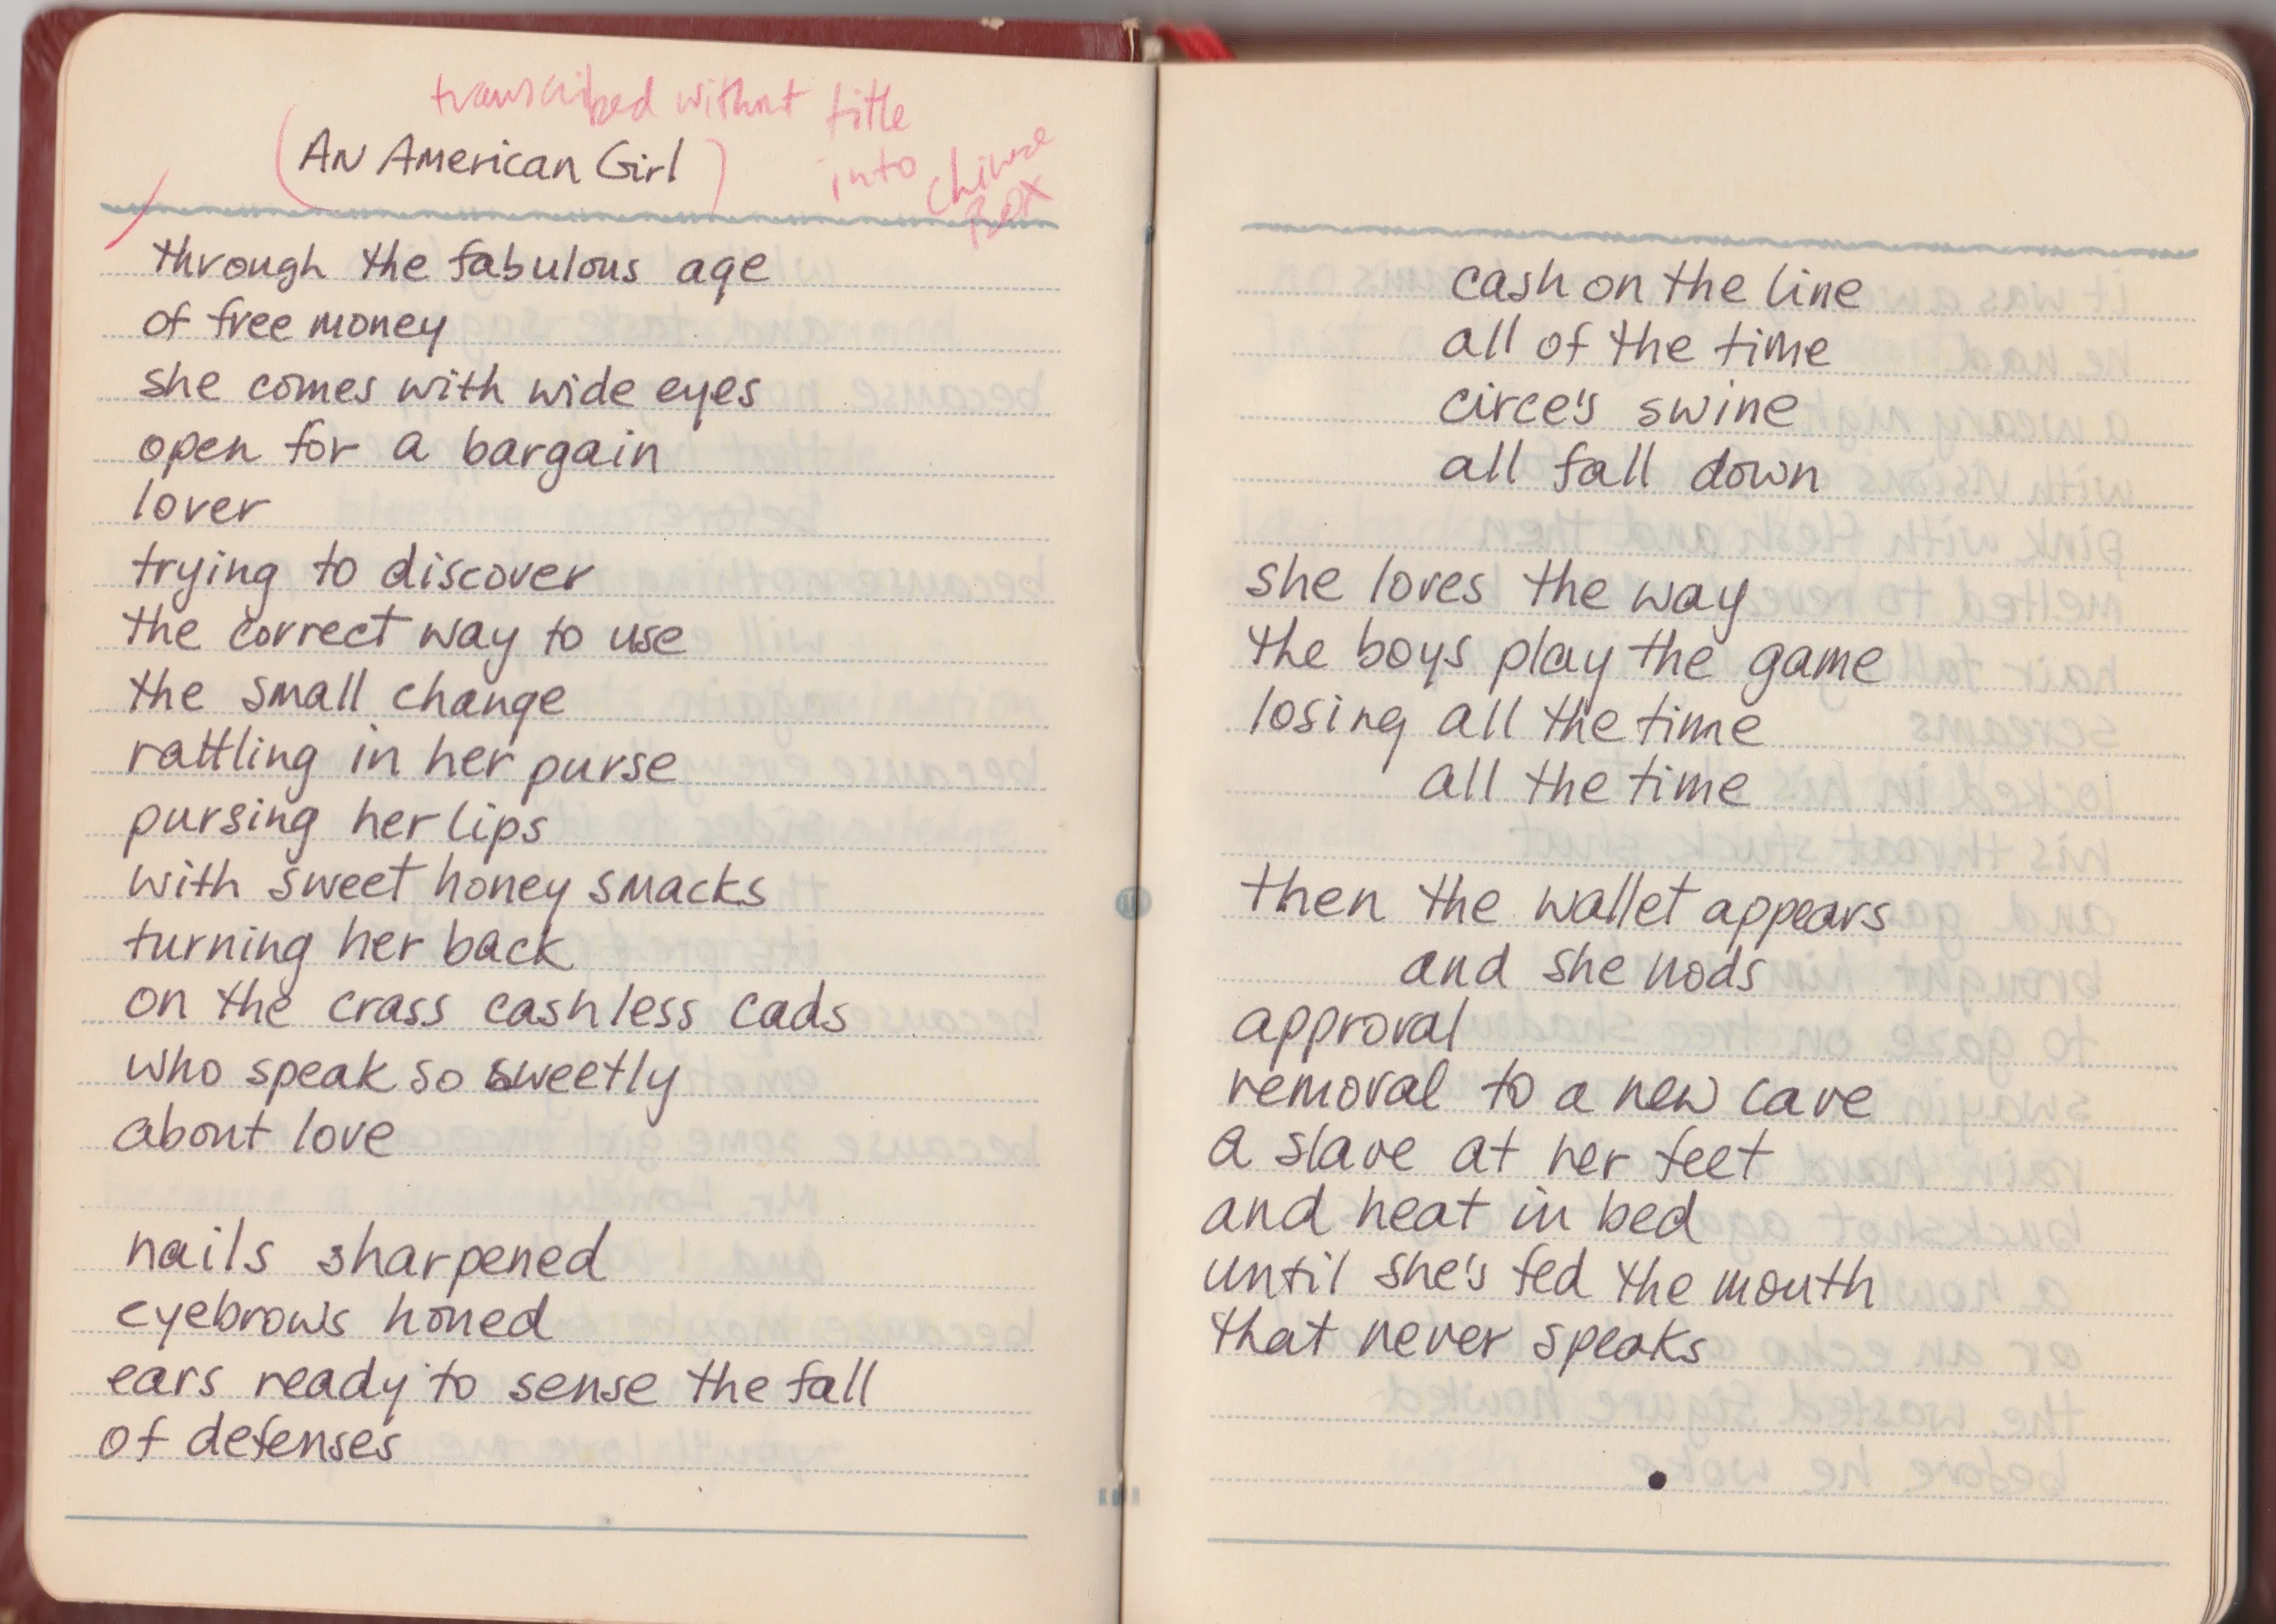 transcribed without title
into Chinese
Box
(AN American Girl)
through the fabulous age
of free money
she comes with wide eyes
open for a bargain
lover
trying to discover
the correct way to use
the small change
rattling in her purse
pursing her lips
with sweet honey smacks
turning her back
on the crass cashless cads
who speak so sweetly
about love
nails sharpened
eyebrows honed
ears ready to sense the fall
of defenses
cash on the line
all of the time
circe's swine
all fall down
she loves the way
the boys play the game
losing all the time
all the time
then the wallet appears
and she nods
approval
removal to a new cave
a slave at her feet
and heat in bed
until she's fed the mouth
that never speaks